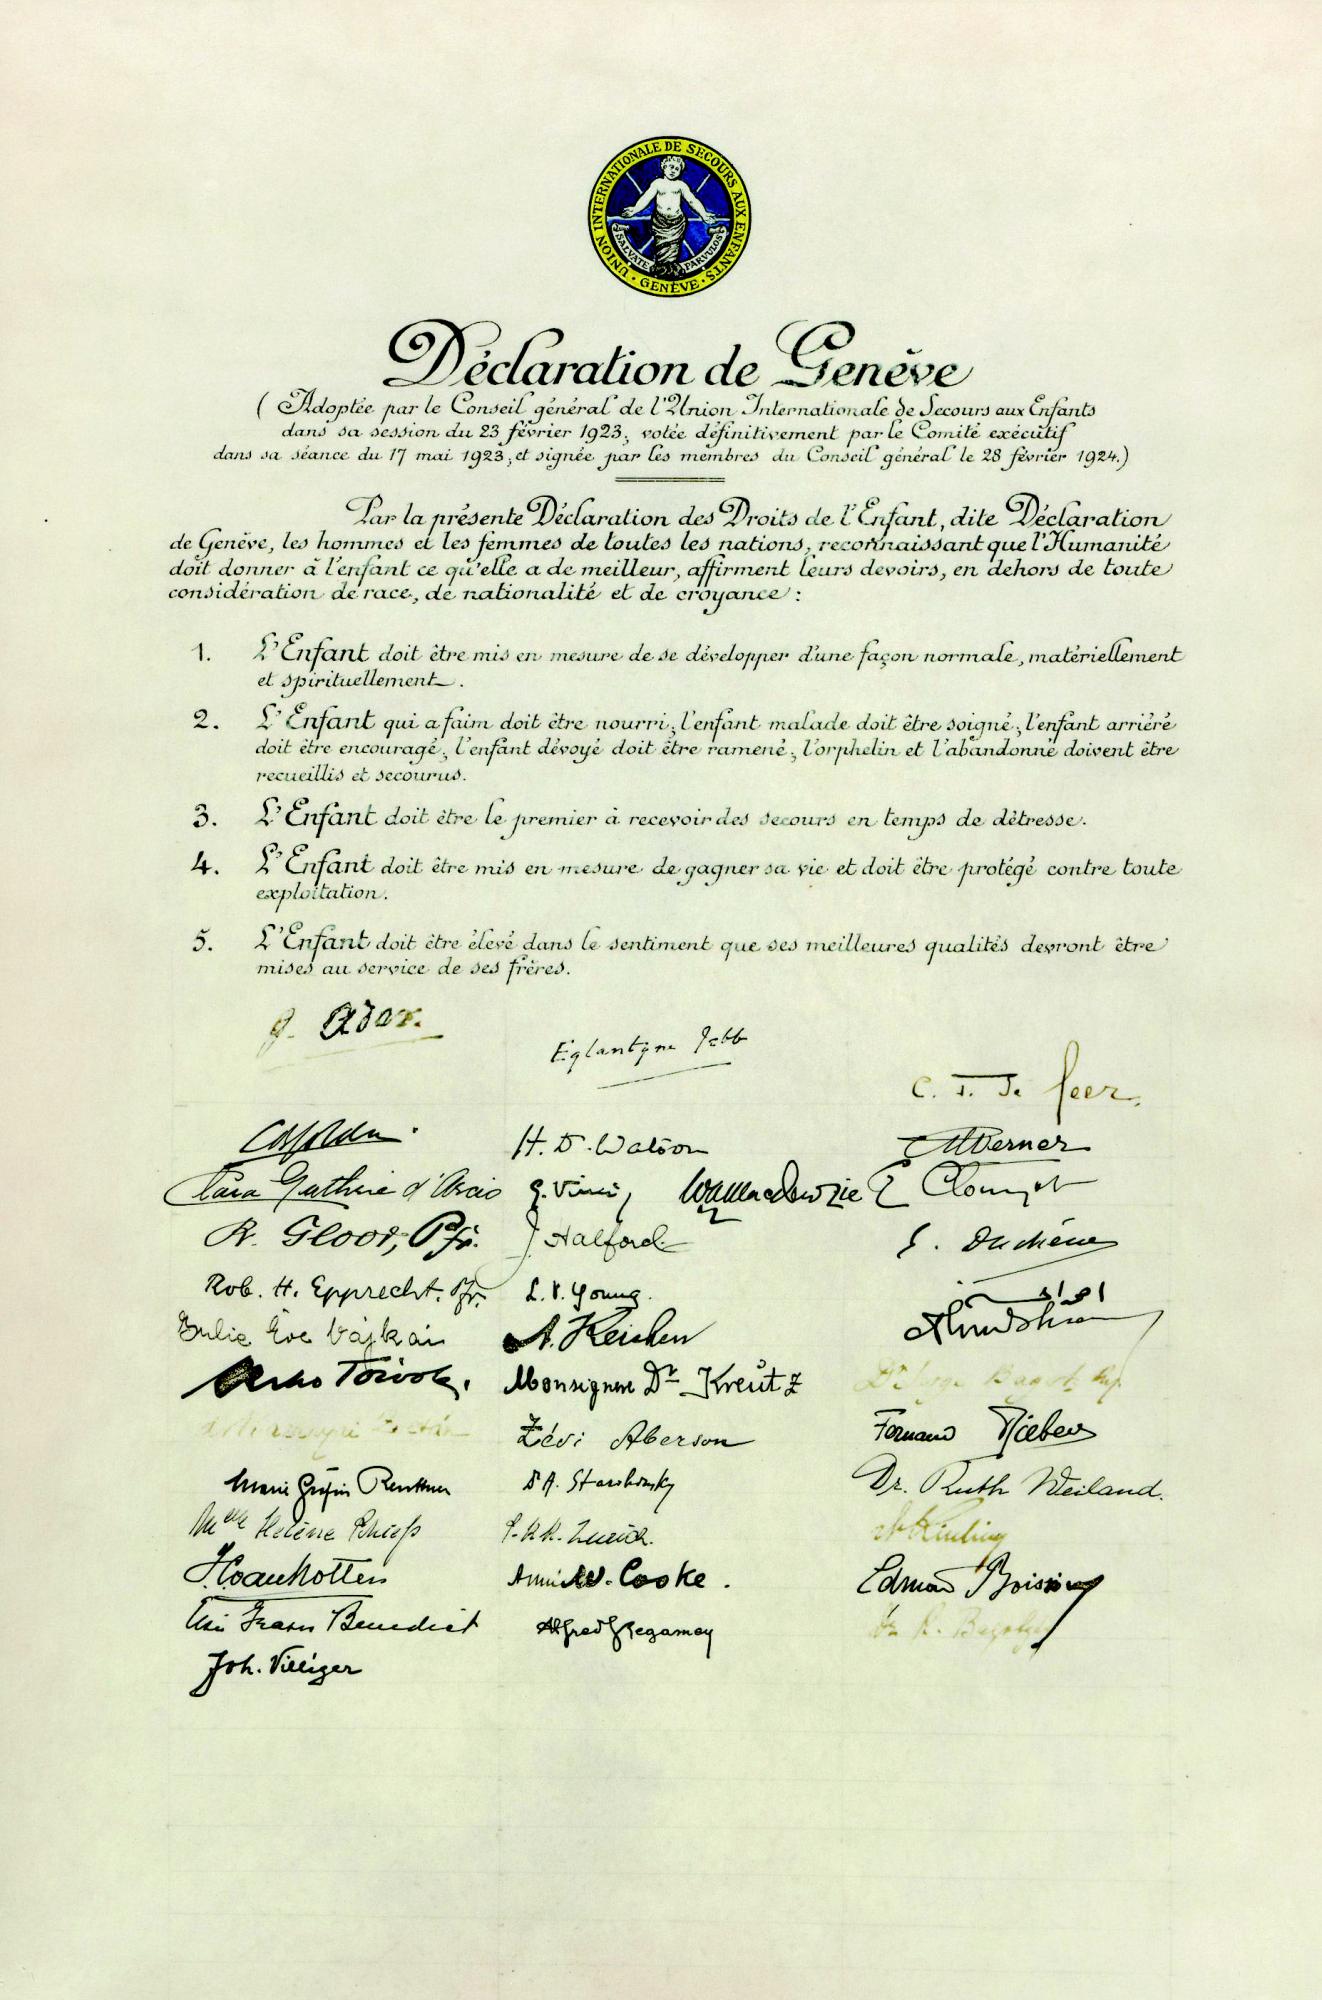 UNION INTERNATIONALE DE SECOURS AUX ENFANTS · GENÈVE ·
SALVATE PARVULOS
Déclaration de Genève
(Adoptée par le Conseil général de l'Union Internationale de Secours aux Enfants
dans sa session du 23 février 1923, votée définitivement par le Comité exécutif
dans sa séance du 17 mai 1923, et signée par les membres du Conseil général le 28 février 1924.)
Par la présente Déclaration des Droits de l'Enfant, dite Déclaration
de Genève, les hommes et les femmes de toutes les nations, reconnaissant que l'Humanité
doit donner à l'enfant ce qu'elle a de meilleur, affirment leurs devoirs, en dehors de toute
considération de race, de nationalité et de croyance :
1. L'Enfant doit être mis en mesure de se développer d'une façon normale, matériellement
et spirituellement.
2. L'Enfant qui a faim doit être nourri; l'enfant malade doit être soigné; l'enfant arriéré
doit être encouragé; l'enfant dévoyé doit être ramené; l'orphelin et l'abandonné doivent être
recueillis et secourus.
3. L'Enfant doit être le premier à recevoir des secours en temps de détresse.
4. L'Enfant doit être mis en mesure de gagner sa vie et doit être protégé contre toute
exploitation.
5. L'Enfant doit être élevé dans le sentiment que ses meilleures qualités devront être
mises au service de ses frères.
G. Ador.
Eglantyne Jebb
H. D. Watson
Werner
Clara Guthrie d'Arcis
G. Vinci, W A Mackenzie E Clouzot
R. Gloor, Pfr.
J. Halford
Rob. H. Epprecht. Pfr.
L. V. Young.
Julie Eve Vajkai
Monsignore Dr Kreutz
Zévi Aberson
Fernand
Marie Gräfin
Dr. Ruth Weiland.
Melle Hélène
Annie W. Cooke.
Benedict
Alfred Regamey
Joh. Villiger